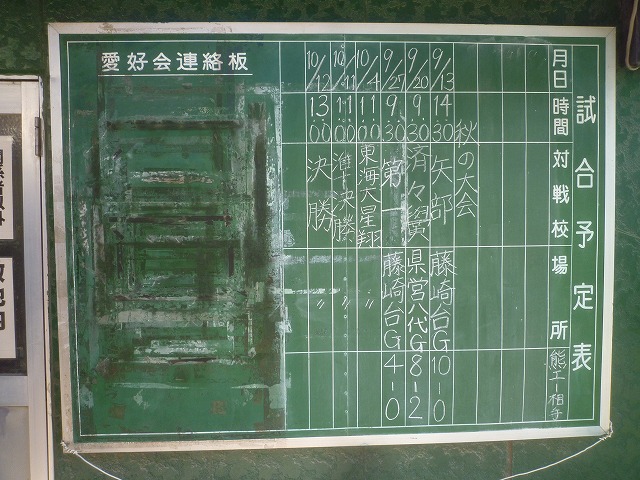 試合予定表
月日 時間 対戦校 場所 熊工-相手
秋の大会
9/13 14:30 矢部 藤崎台G 10-0
9/20 9:30 済々黌 県営八代G 8-2
9/27 9:30 第一 藤崎台G 4-0
10/4 11:00 東海大星翔 〃
10/11 11:00 準決勝 〃
10/12 13:00 決勝 〃
愛好会連絡板